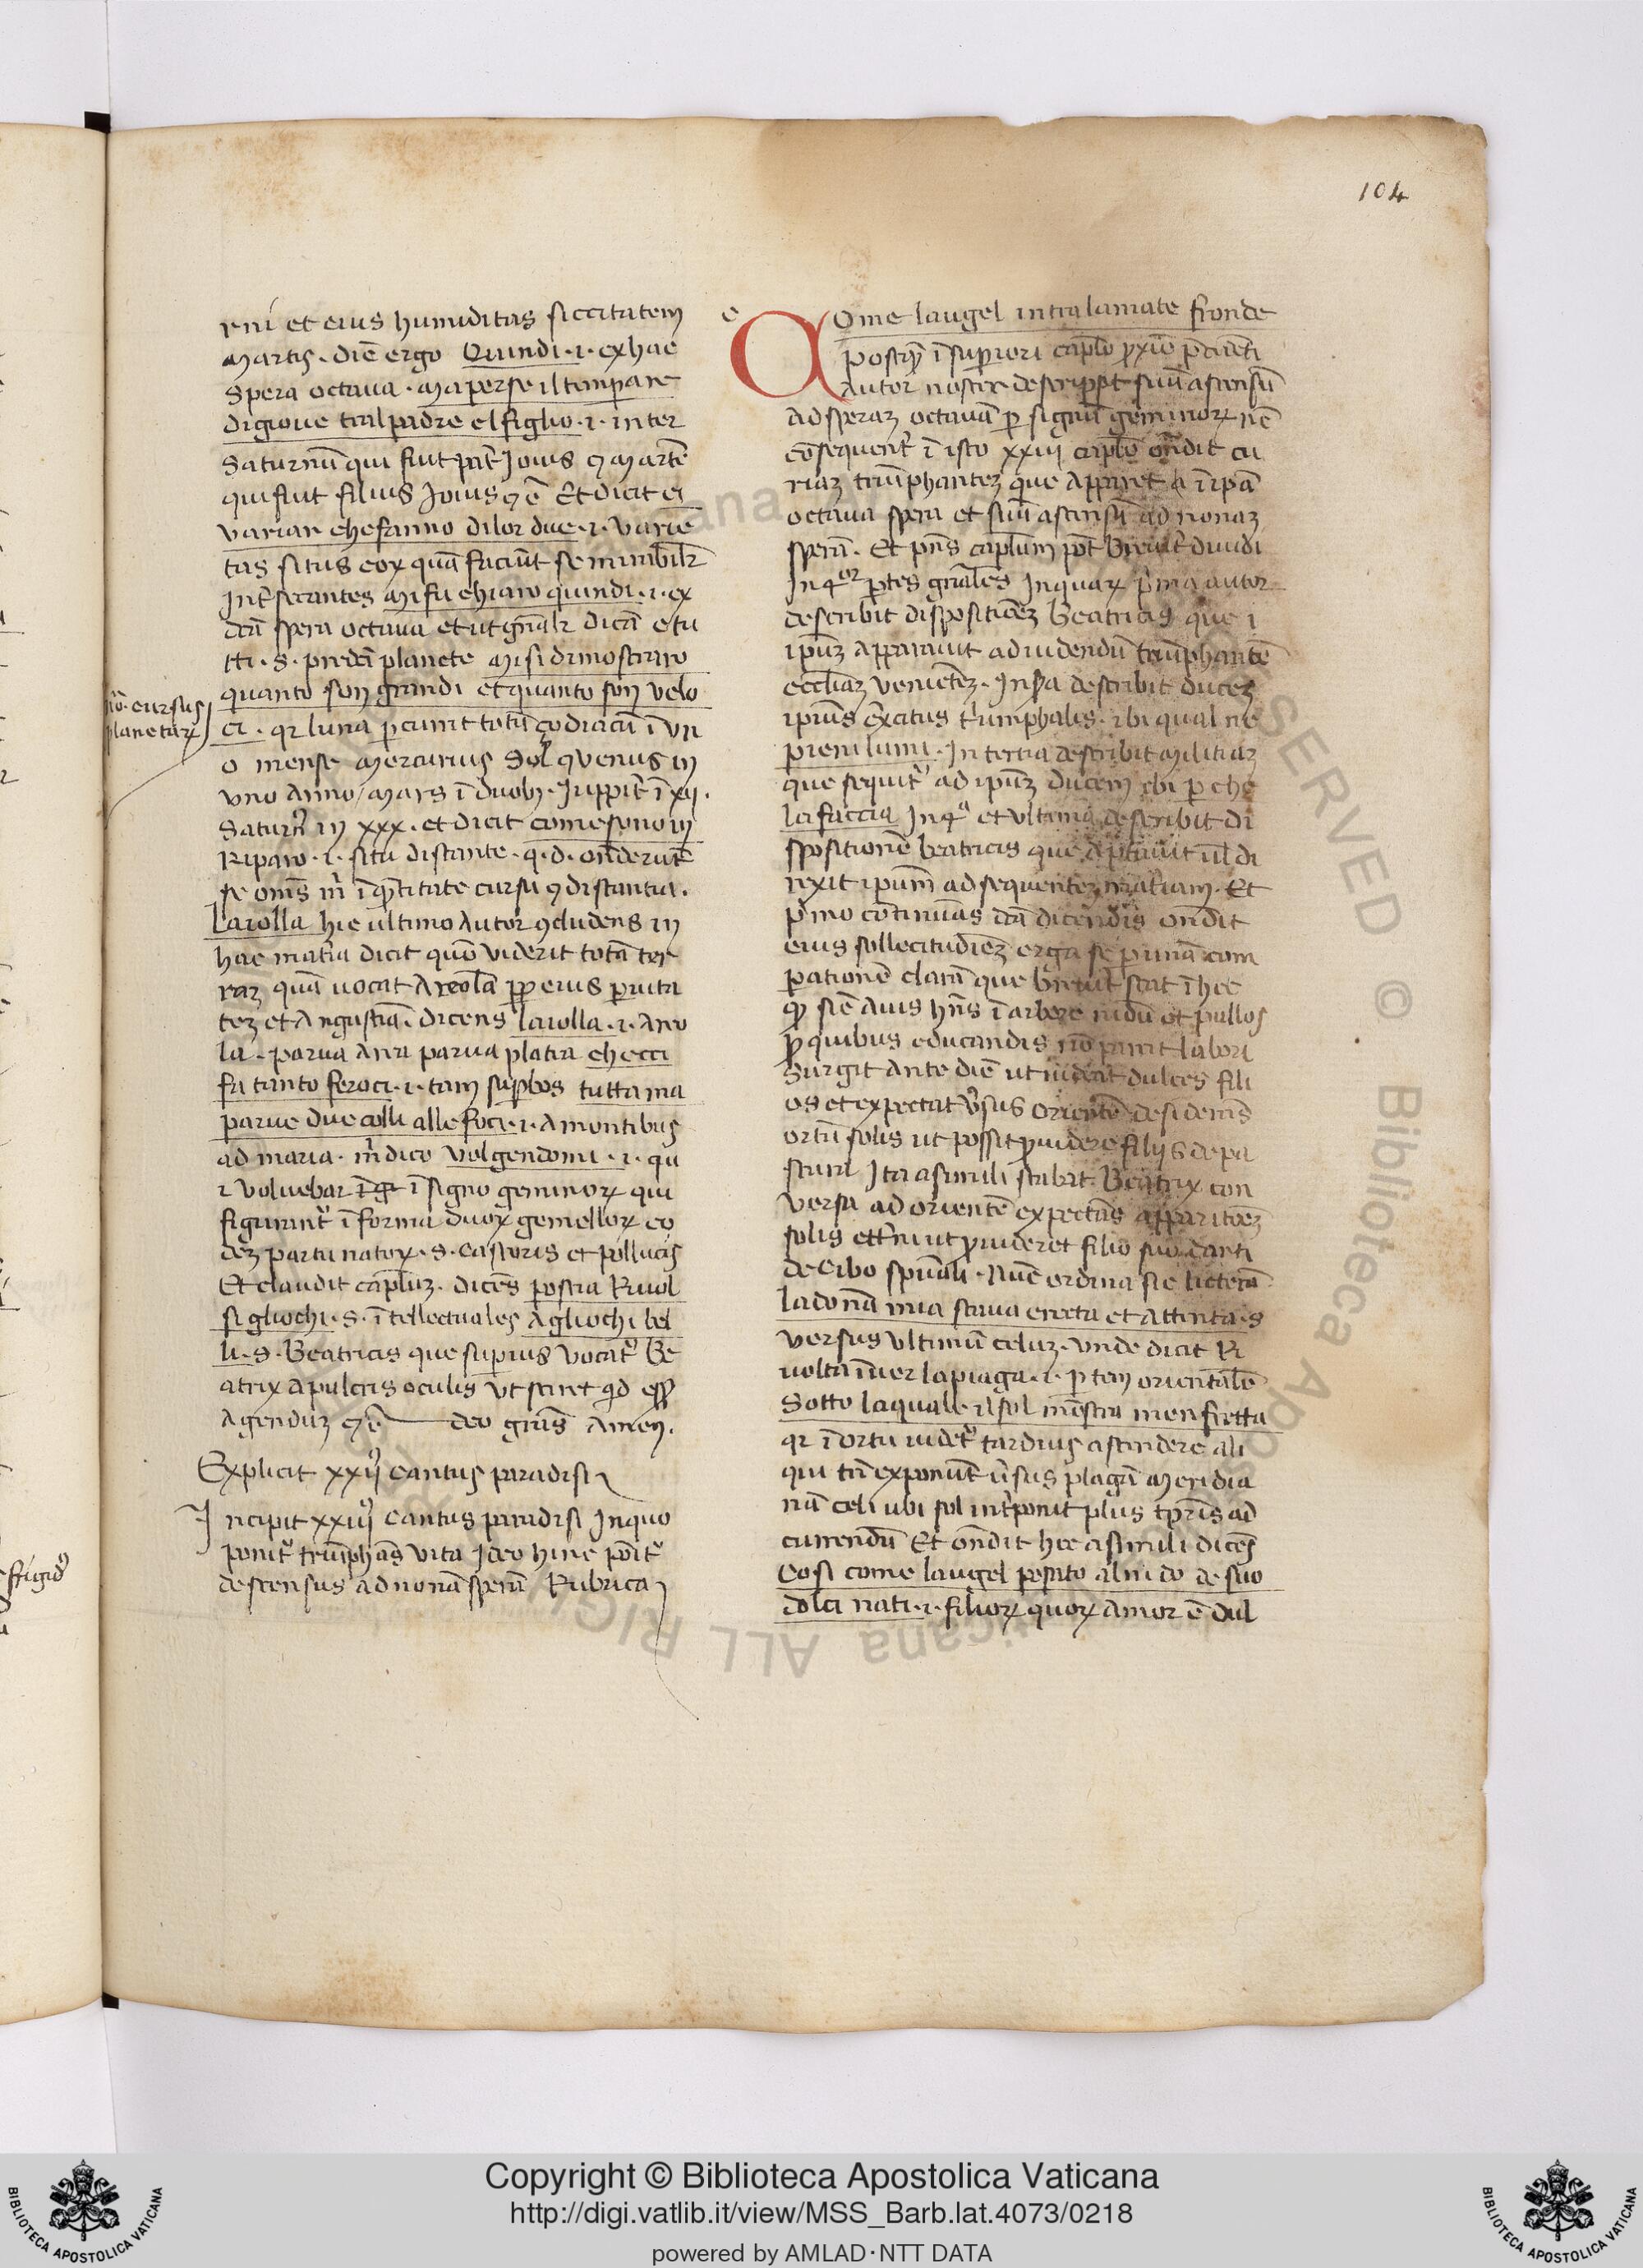 104
rni et eius humiditas siccitatem
martis. diē ergo Quindi .i. ex hac
spera octava. ma per se il temperare
digiove tral padre el figlio .i. inter
Saturnū qui fuit pat̄ Jovis ꝯ martē
qui fuit filius Jovis ꝯ ē Et dicit ei
variar che fanno di lor dve .i. variē
tas situs eoꝝ quā faciūt se mirabilr̄
Int̄secantes mi fu chiaro quindi .i. ex
dc̄ā spera octava et ut gn̄alr̄ dicā etu
tti .s. predc̄ī planete mi si dimostraro
quanto son grandi et quanto son velo
nō. cursus
planetaꝝ
ci. qꝛ luna ꝑcurrit totū çodiacū ī vn
o mense mercurius Sol ꝯ venus in
vno Anno / mars ī duobꝫ. Juppit̄ ī xij.
Saturn̄ in xxx. et dicit come sono in
Riparo .i. situ distante .q.d. onderūt
se om̄s m̄ ī qntitate cursu ꝯ distantia.
Laiolla hic ultimo Autor ꝯcludens in
hac mat̄ia dicit quō viderit totā ter
raꝫ quā vocat Areolā ꝓp eius ꝑuita
teꝫ et Angustiā. dicens laiolla .i. Areo
la. parva Area parva platea che cci
fa tanto feroci .i. tam suꝑbos tutta ma
parve dve colli alle foci .i. A montibus
ad maria. m̄ dico volgendomi .i. qu
i volvebar ī signo geminoꝝ qui
figurant̄ ī forma duoꝝ gemelloꝝ eo
deꝫ partu natoꝝ .s. castoris et pollucis
Et claudit caplūꝫ. dicēs poscia Rivol
si gliochi .s. ītellectuales Agliochi bel
li .s. Beatricis que superius vocat̄ Be
atrix A pulcris oculis vt sciret qd esset
Agenduꝫ ꝯ ē deo gratias Amen.
Explicit xxij cantus paradisi
Incipit xxiij cantus paradisi Inquo
ponit̄ triūphās vita Ideo hinc poīt̄
descensus ad nonā sperā Rubrica
e
Come laugel intra lamate fronde
postqꝫ ī superiori caplō ꝓxīo ꝑcedēti
Autor noster descripsit suū ascensū
ad speraꝫ octavā ꝑ signū geminoꝝ nc̄
cōsequent̄ ī isto xxiij caplō on̄dit cu
riaꝫ triūphanteꝫ que Apparet ī ip̄ā
octava spera et suū ascensū ad nonaꝫ
sperā. Et pn̄s caplūm pōt brevit̄ dividi
In 4or ꝑtes gn̄ales Inquaꝝ prima autor
describit dispositiōeꝫ Beatricis que i
ip̄uꝫ Apparuit ad videndū triūphantē
eccl̄iaꝫ venientēꝫ. In s̄a describit ducēꝫ
ipsius exc̄itus triumphalis. ibi qual ne
prenilumi. In tertia describit militiaꝫ
que sequit̄ ad ip̄uꝫ ducem ibi perche
la faccia In 4ª et ultima describit di
spositionē beatricis que Aptavit vl̄ di
rexit ip̄um ad sequenteꝫ matiam. Et
primo continuās dc̄ā dicendis on̄dit
eius sollicitudīeꝫ erga se ꝑ unā com
ꝑationē clarā que brevit̄ stat ī hoc
qꝫ sic̄ Avis hn̄s ī arbore nidū et pullos
ꝓ quibus educandis nō parcit labori
Surgit Ante diē ut videat dulces fili
os et expectat ṽsus orientē desiderās
ortū solis ut possit ꝓvidere filijs de pa
stura Ita a simili stabat Beatrix con
versa ad orientē expectās apparitiōeꝫ
solis ut ꝓvideret filio suo danti
de cibo spūali. Nūc ordina sic licterā
la donā mia stava erecta et Attenta .s
versus ultimū celuꝫ. vnde dicit Ri
volta iñver la piaga .i. ꝑtem orientalē
Sotto laquale il sol mōstra men fretta
qꝛ ī ortu videt̄ tardius ascendere ali
qui tn̄ exponūt ṽsus plagā meridia
nā celi ubi sol int̄ponit plus tp̄ris ad
currendū Et on̄dit hec a simili dicēs
Cosi come laugel posato al nido de suo
dolci nati .i. filioꝝ quoꝝ Amor ē dul
frigid
Copyright © Biblioteca Apostolica Vaticana
http://digi.vatlib.it/view/MSS_Barb.lat.4073/0218
powered by AMLAD·NTT DATA
BIBLIOTECA APOSTOLICA VATICANA
BIBLIOTECA APOSTOLICA VATICANA